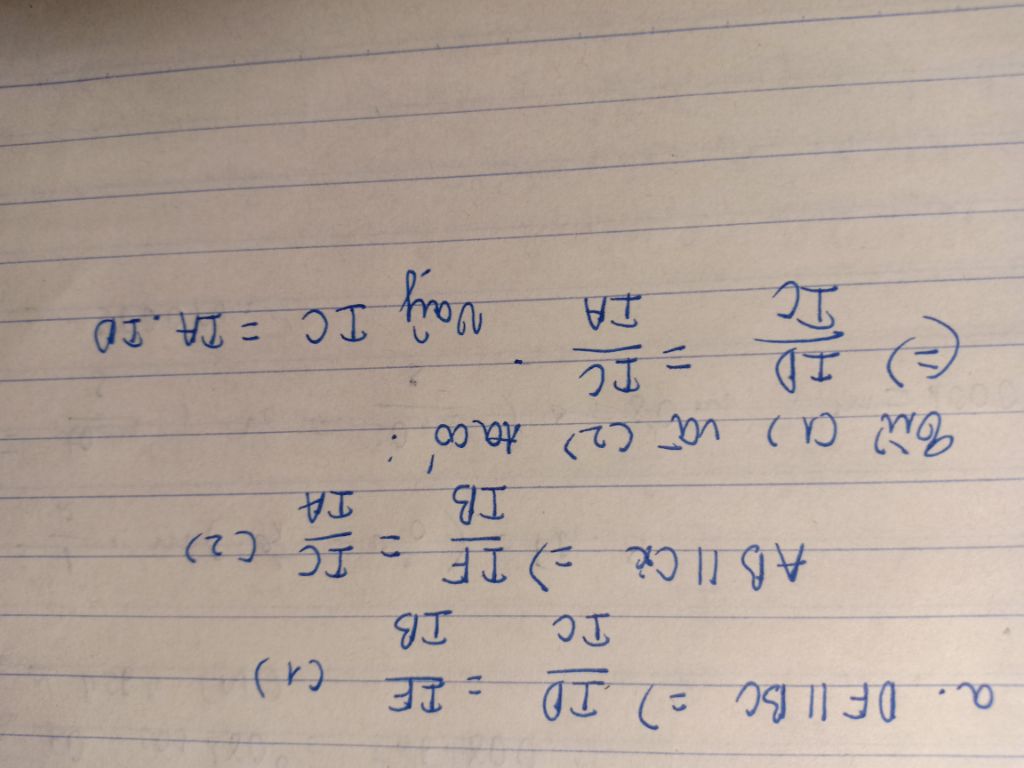 a. DF // BC => ID/IC = IF/IB (1)
AB // Cx => IF/IB = IC/IA (2)
Từ (1) và (2) ta có :
(=) ID/IC = IC/IA . Vậy IC = IA . ID